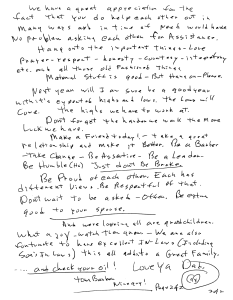 We have a great appreciation for the
fact that you do help each other out in
many ways and in time of need would have
No problem asking each other for Assistance.
Hang onto the important things - Love
Prayer - respect - honesty - courtesy -
etc. and all those old fashioned things.
Material Stuff is good - But
Next year will I am sure be a good year
with it's expected highs and lows. The lows will
Come. The highs we have to work at.
Don't forget the harder we work the More
Luck we have.
Make a Friend today! - take a great
relationship and make it Better. Be a
- Take Charge - Be Assertive - Be a Leader.
Be Humble Just don't Be Broke
Be Proud of each other. Each has
different Views. Be Respectful of that.
Don't wait to be asked - Offer. Be extra
good to your spouse.
And were loving all are grandchildren.
What a joy - watch them grow - We are also
fortunate to have excellent In Laws (Including
Son's In Laws) this all adds to a Great Family.
.... and check your oil!! Love Ya Dad
Page 2 of 2